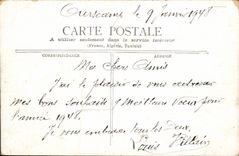 Ourscamp le 9 Janvier 1948
CARTE POSTALE
A utiliser seulement dans le service intérieur
(France, Algérie, Tunisie)
CORRESPONDANCE
Mes Chers Amis
J'ai le plaisir de vous
Mes bons souhaits & Meilleurs Voeux pour
l'année 1948.
Je vous embrasse tous les deux.
Louis